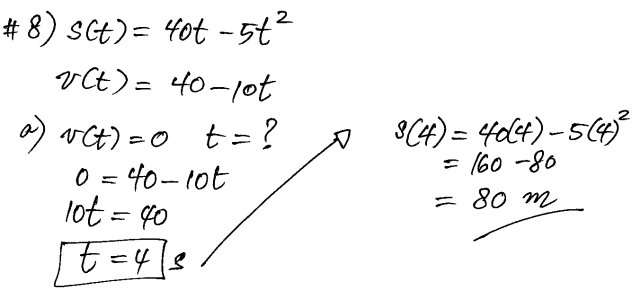 #8) s(t) = 40t - 5t²
v(t) = 40 - 10t
a) v(t) = 0 t = ?
0 = 40 - 10t
10t = 40
t = 4 s
s(4) = 40(4) - 5(4)²
= 160 - 80
= 80 m